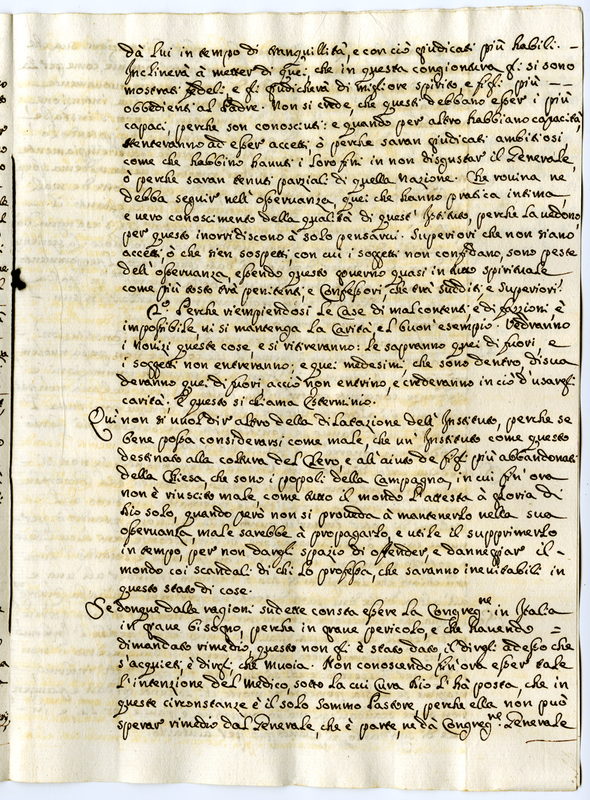 dà lui in tempo di tranquillità, e con ciò giudicati più habili. –
Inclinerà à metter di quei, che in questa congiontura gli si sono
mostrati fedeli, e gli giudicherà di migliore spirito, e figli più –
obbedienti al Padre. Non si crede, che questi debbano esser i più
capaci, perche son conosciuti: e quando per altro habbiano capacità,
stenteranno ad esser accetti, ò perche saran giudicati ambitiosi
come che habbino hauuti i loro fini in non disgustar il Generale,
ò perche saran tenuti parziali di quella nazione. Che rovina ne
debba seguir nell'osseruanza, quei che hanno pratica intima,
e vero conoscimento della qualità di quest'Istituto, perche la uedono,
per questo inorridiscono à solo pensarui. Superiori che non siano
accetti, ò che sien sospetti, con cui i soggetti non confidano, sono peste
dell'osseruanza, essendo questo gouerno quasi in tutto spirituale
come più tosto trà penitenti, e Confessori, che trà sudditi e Superiori.
Perche riempiendosi le Case di malcontenti, e di fazzioni, è
impossibile ui si mantenga la Carità, e'l buon'esempio. Vedranno
i nouizi queste cose, e si ritireranno: le sapranno quei di fuori, e
i soggetti non entreranno; e quei medesimi, che sono dentro, disua
deranno quei di fuori acciò non entrino, e crederanno in ciò d'usargli
carità. E questo si chiama Esterminio.
Quì non si vuol dir altro della dilatazione dell'Instituto, perche se
bene possa considerarsi come male, che un'Instituto come questo
destinato alla coltura del Clero, e all'aiuto de figli più abbandonati
della Chiesa, che sono i popoli della Campagna, in cui fin'ora
non è riuscito male, come tutto il mondo l'attesta à gloria di
Dio solo, quando però non si proueda à mantenerlo nella sua
osseruanza, male sarebbe à propagarlo, e utile il supprimerlo
in tempo, per non dargli spazio di offender, e danneggiar il –
mondo coi scandali di chi lo professa, che saranno ineuitabili in
questo stato di cose.
Se donque dalla ragioni sudette consta essere la Congreg.ne in Italia
in graue bisogno, perche in graue pericolo, e che hauendo =
dimandato rimedio, questo non gli è stato dato il dirgli adesso che
s'acquieti, è dirgli che muoia. Non conoscendo fin'ora esser tale
l'intenzione del Medico, sotto la cui cura Dio l'hà posta, che in
queste circonstanze è il solo Sommo Pastore, perche ella non può
sperar rimedio dal Generale, che è parte, ne dà Congreg.ne Generale